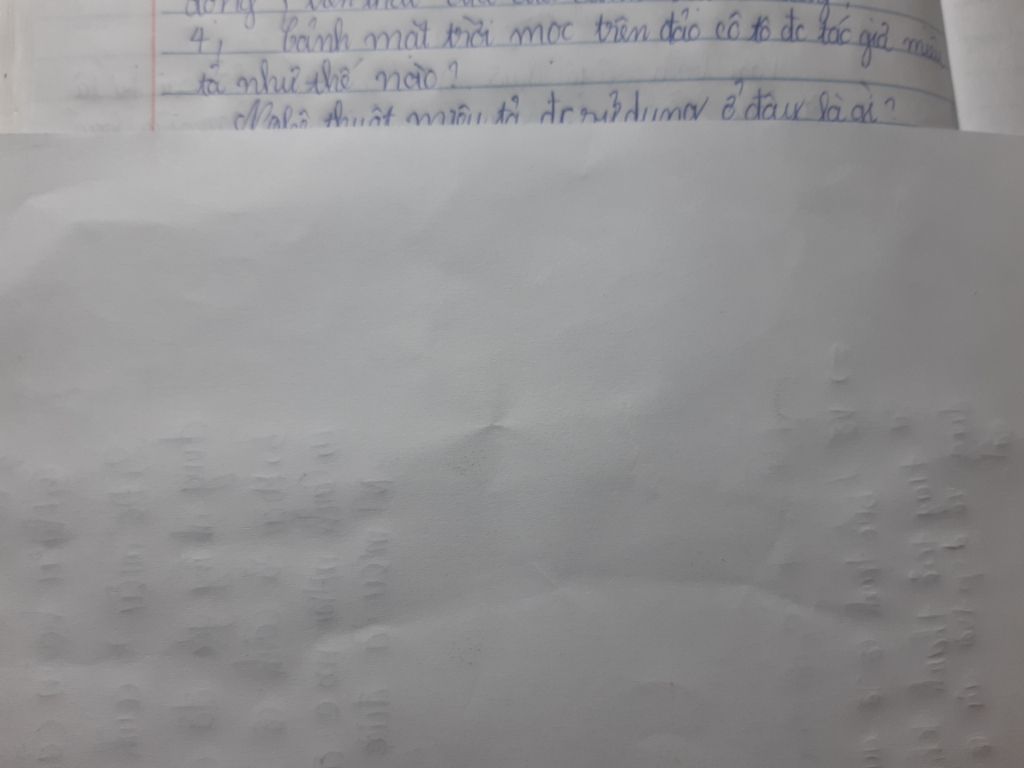 động
4, Cảnh mặt trời mọc trên đảo cô tô đc tác giả miêu
tả như thế nào?
Nghệ thuật miêu tả đc sử dụng ở đây là gì?